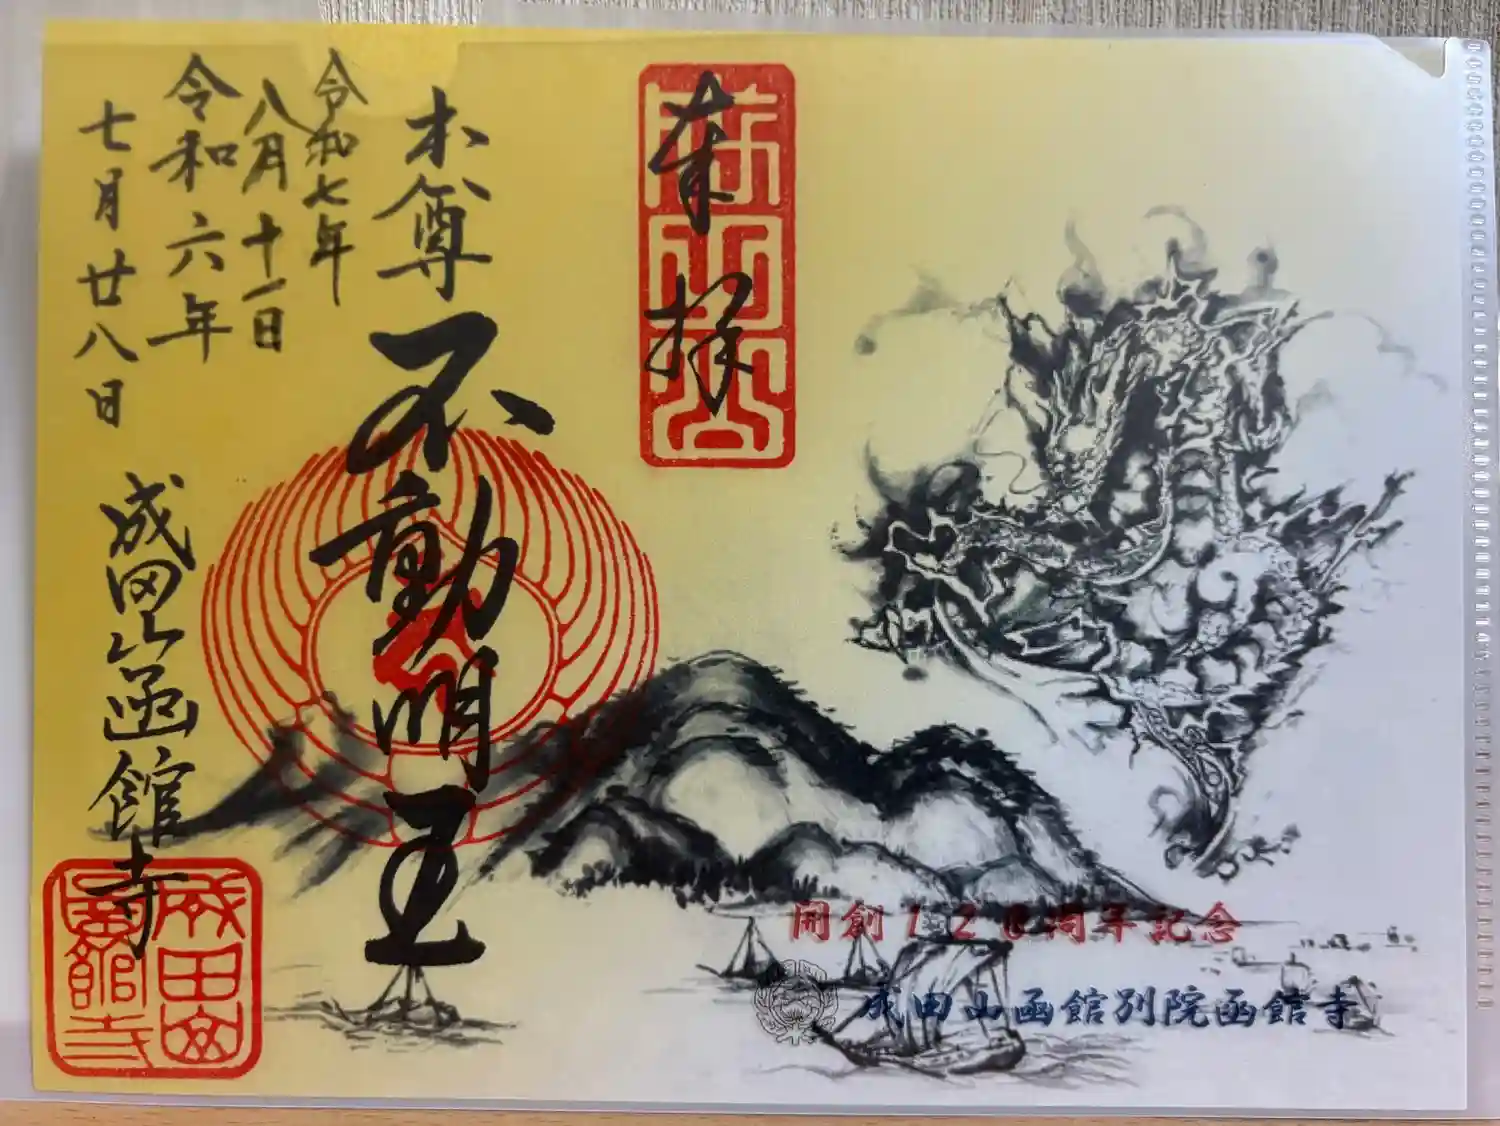 奉拝
本尊
不動明王
令和七年
八月十一日
令和六年
七月廿八日
成田山函館寺
開創120周年記念
成田山函館別院函館寺